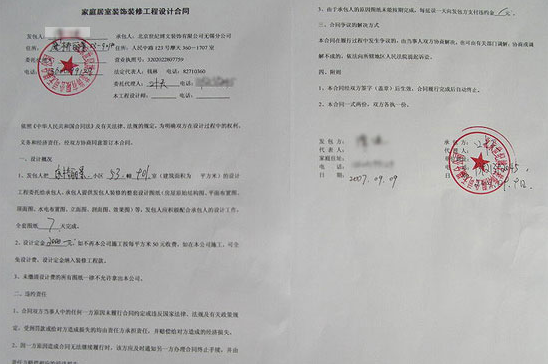 家庭居室装饰装修工程设计合同
发包人:
承包人:北京世纪博文装饰有限公司无锡分公司
住所:
住所:人民中路 123 号摩天 360-1707 室
委托代
营业执照号:3202022807759
电话:
法定代表人:钱林 电话:82710360
委托代理人: 电话:
本工程设计师: 电话:
依照《中华人民共和国合同法》及有关法律、法规的规定,为明确双方在设计过程中的权利、
义务和经济责任,经双方协商同意签订本合同。
一、设计概况
1、发包人把 小区 53 幢 (建筑面积为 平方米)的设计
工程委托给承包人,承包人提供发包人装修的整套设计图纸(房屋原始结构图、平面布置图、
顶面图、水电布置图、立面图、剖面图、效果图)等,发包人应积极配合承包人的设计工作,
全套图纸 7 天完成。
2、设计定金 2000 元 如不再本公司施工按每平方米 50 元收费,如在本公司施工,可全
免设计费,设计定金纳入装修工程款。
3、未缴清设计费的所有图纸一律不允许拿出本公司。
二、违约责任
1、合同双方当事人中的任何一方原因未履行合同约定或违反国家法律、法规及有关政策规
定,受到罚款或给对方造成损失的均由责任方承担责任,并赔偿给对方造成的经济损失。
2、因一方原因造成合同无法继续履行时,该方应及时通知另一方办理合同终止手续,并由
3、由于承包人的原因图纸未能按期完成,每延误一天向发包方支付违约金 元。
三、合同争议的解决方式
本合同在履行过程中发生争议的,由当事人双方协商解决,也可由有关部门调解,协商或调
解不成的,依法向所辖地区人民法院提起诉讼。
四、附则
1、本合同经双方签字(盖章)后生效,合同履行完成后自动终止。
2、本合同一式两份,双方各执一份。
发 包 方: 承 包 方:
代 表 人: 代 表 人:
家庭住址:
电 话: 电 话:
日 期:2007.09.09 日